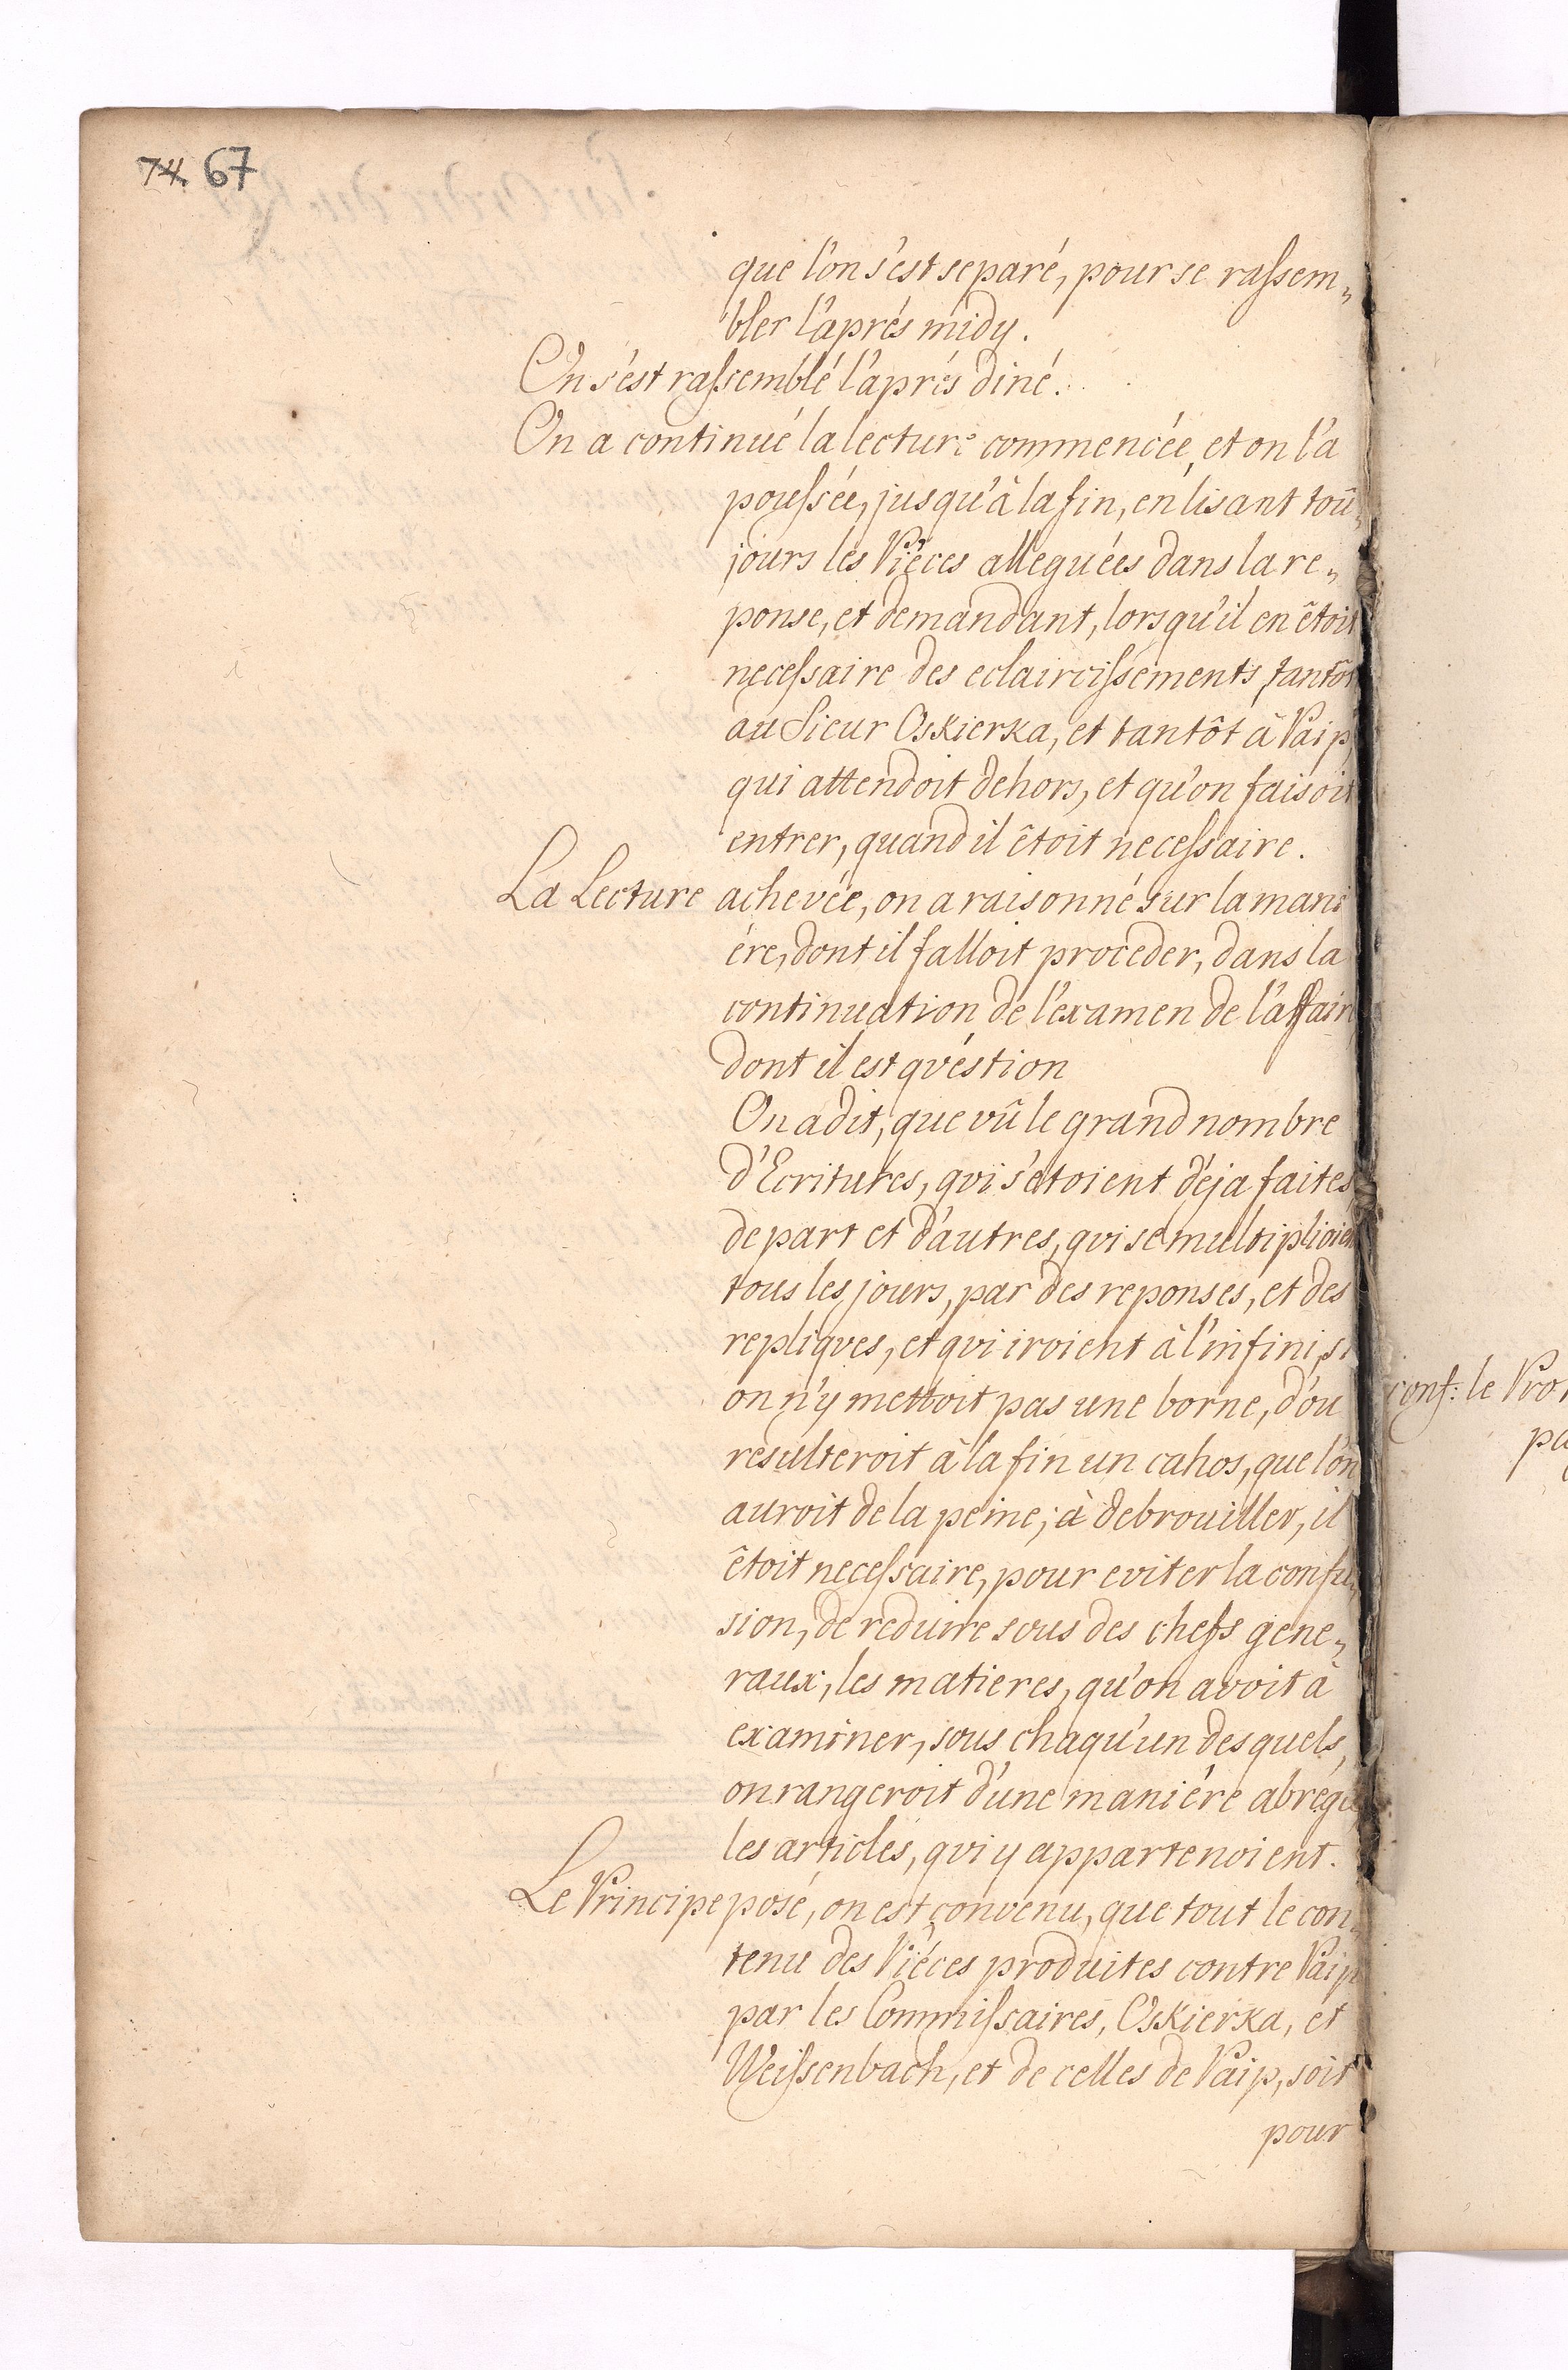 74 67
que l'on s'est separé, pour se rassem„
bler l'aprés midy.
On s'est rassemblé l'aprés diné.
On a continué la lecture commencée, et on l'a
poussée, jusqu'à la fin, en lisant toû„
jours les Piéces alleguées dans la re„
ponse, et demandant, lorsqu'il en êtoit
necessaire des eclaircissements, tantôt
au Sieur Oskierka, et tantôt à Paip,
qui attendoit dehors, et qu'on faisoit
entrer, quand il êtoit necessaire.
La Lecture achevée, on a raisonné sur la mani
ére, dont il falloit proceder, dans la
continuation de l'examen de l'affair
dont il est quéstion
On a dit, que vû le grand nombre
d'Ecritures, qui s'etoient déja faites,
de part et d'autres, qui se multiplioien
tous les jours, par des reponses, et des
repliques, et qui iroient à l'infini, si
on n'y mettoit pas une borne, d'ou
resulteroit à la fin un cahos, que l'on
auroit de la peine, à debrouiller, il
êtoit necessaire, pour eviter la confu„
sion, de reduire sous des chefs gene„
raux, les matieres, qu'on avoit à
examiner, sous chaqu'un desquels,
on rangeroit d'une maniére abrégé
les articles, qui y appartenoient.
Le Principe posé, on est convenu, que tout le con„
tenu des Piéces produites contre Paip
par les Commissaires, Oskierka, et
Weissenbach, et de celles de Paip, soit
pour
conf: le Pro
pa